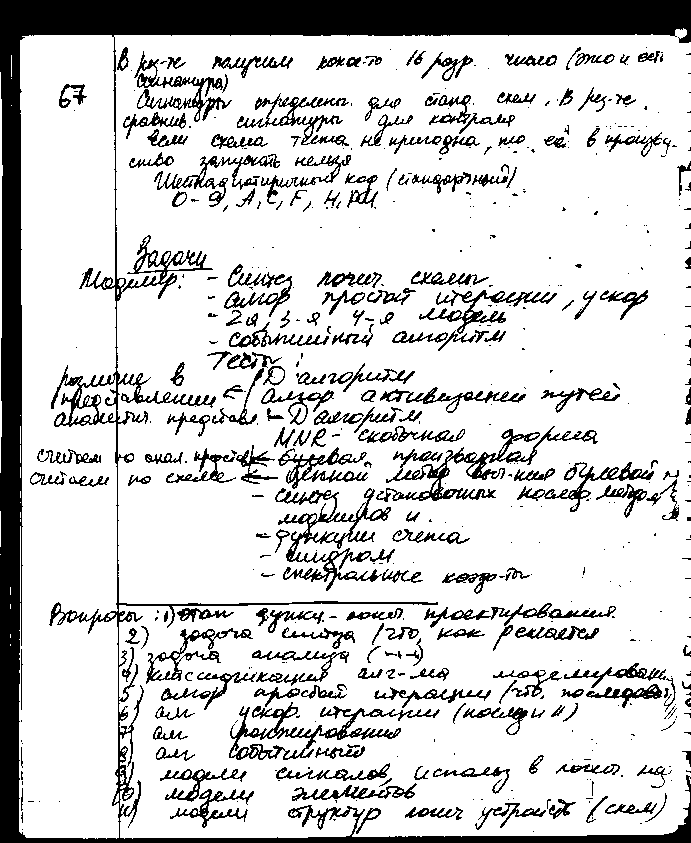 В рез-те получим какое-то 16 разр. число (это и есть
сигнатура)
67
Сигнатуры определены для станд. схем. В рез-те
сравнив. сигнатуры для контроля
Если схема теста не пригодна, то её в произво-
ство запускать нельзя
Шестнадцатиричный код (стандартный)
0-9, A, C, F, H, P, U
Задачи
Моделир: - Синтез логич схемы
- алгор простой итерации, ускор
- 2я, 3-я 4-я модель
- событийный алгоритм
Тесты:
различие в D алгоритм
представлении алгор активизацией путей
аналитич. представл. - D алгоритм
MNR - скобочная форма
считаем по анал. булевая производная
считаем по схеме цепной метод выч-ния булевой
- синтез установочных послед. метод
моделиров и
- функции счета
- синдром
- спектральные коэф-ты
Вопросы: 1) этап функц-лог. проектирования
2) задача синтеза (что, как решается
3) задача анализа (-"-)
4) классификация алг-ма моделирован
5) алгор простой итерации (что, последоват
6) ал ускор. итерации (послед и II)
7) ал ранжирования
8) ал событийный
9) модели сигналов, использ в логич. мод
10) модели элементов
11) модели структур логич устройств (схем)